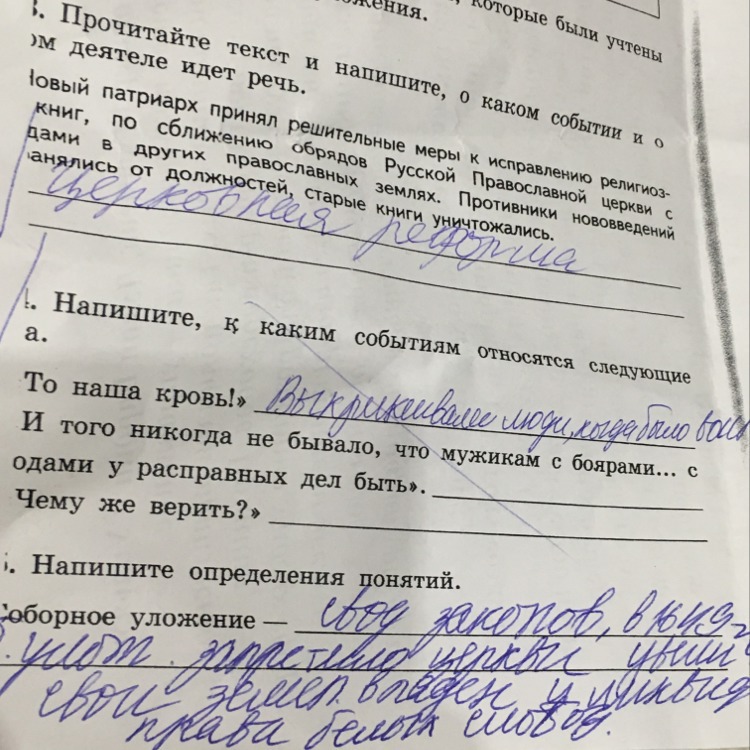 , которые были учтены
ожения.
3. Прочитайте текст и напишите, о каком событии и о
ом деятеле идет речь.
Новый патриарх принял решительные меры к исправлению религиоз-
книг, по сближению обрядов Русской Православной церкви с
дами в других православных землях. Противники нововведений
анялись от должностей, старые книги уничтожались.
церковная реформа
. Напишите, к каким событиям относятся следующие
а.
То наша кровь!» Выкрикивали люди, когда было
И того никогда не бывало, что мужикам с боярами... с
одами у расправных дел быть».
Чему же верить?»
5. Напишите определения понятий.
Соборное уложение — свод законов, в
улож. запретило церкви
свои земел. владен и ликвид
права белых слобод.